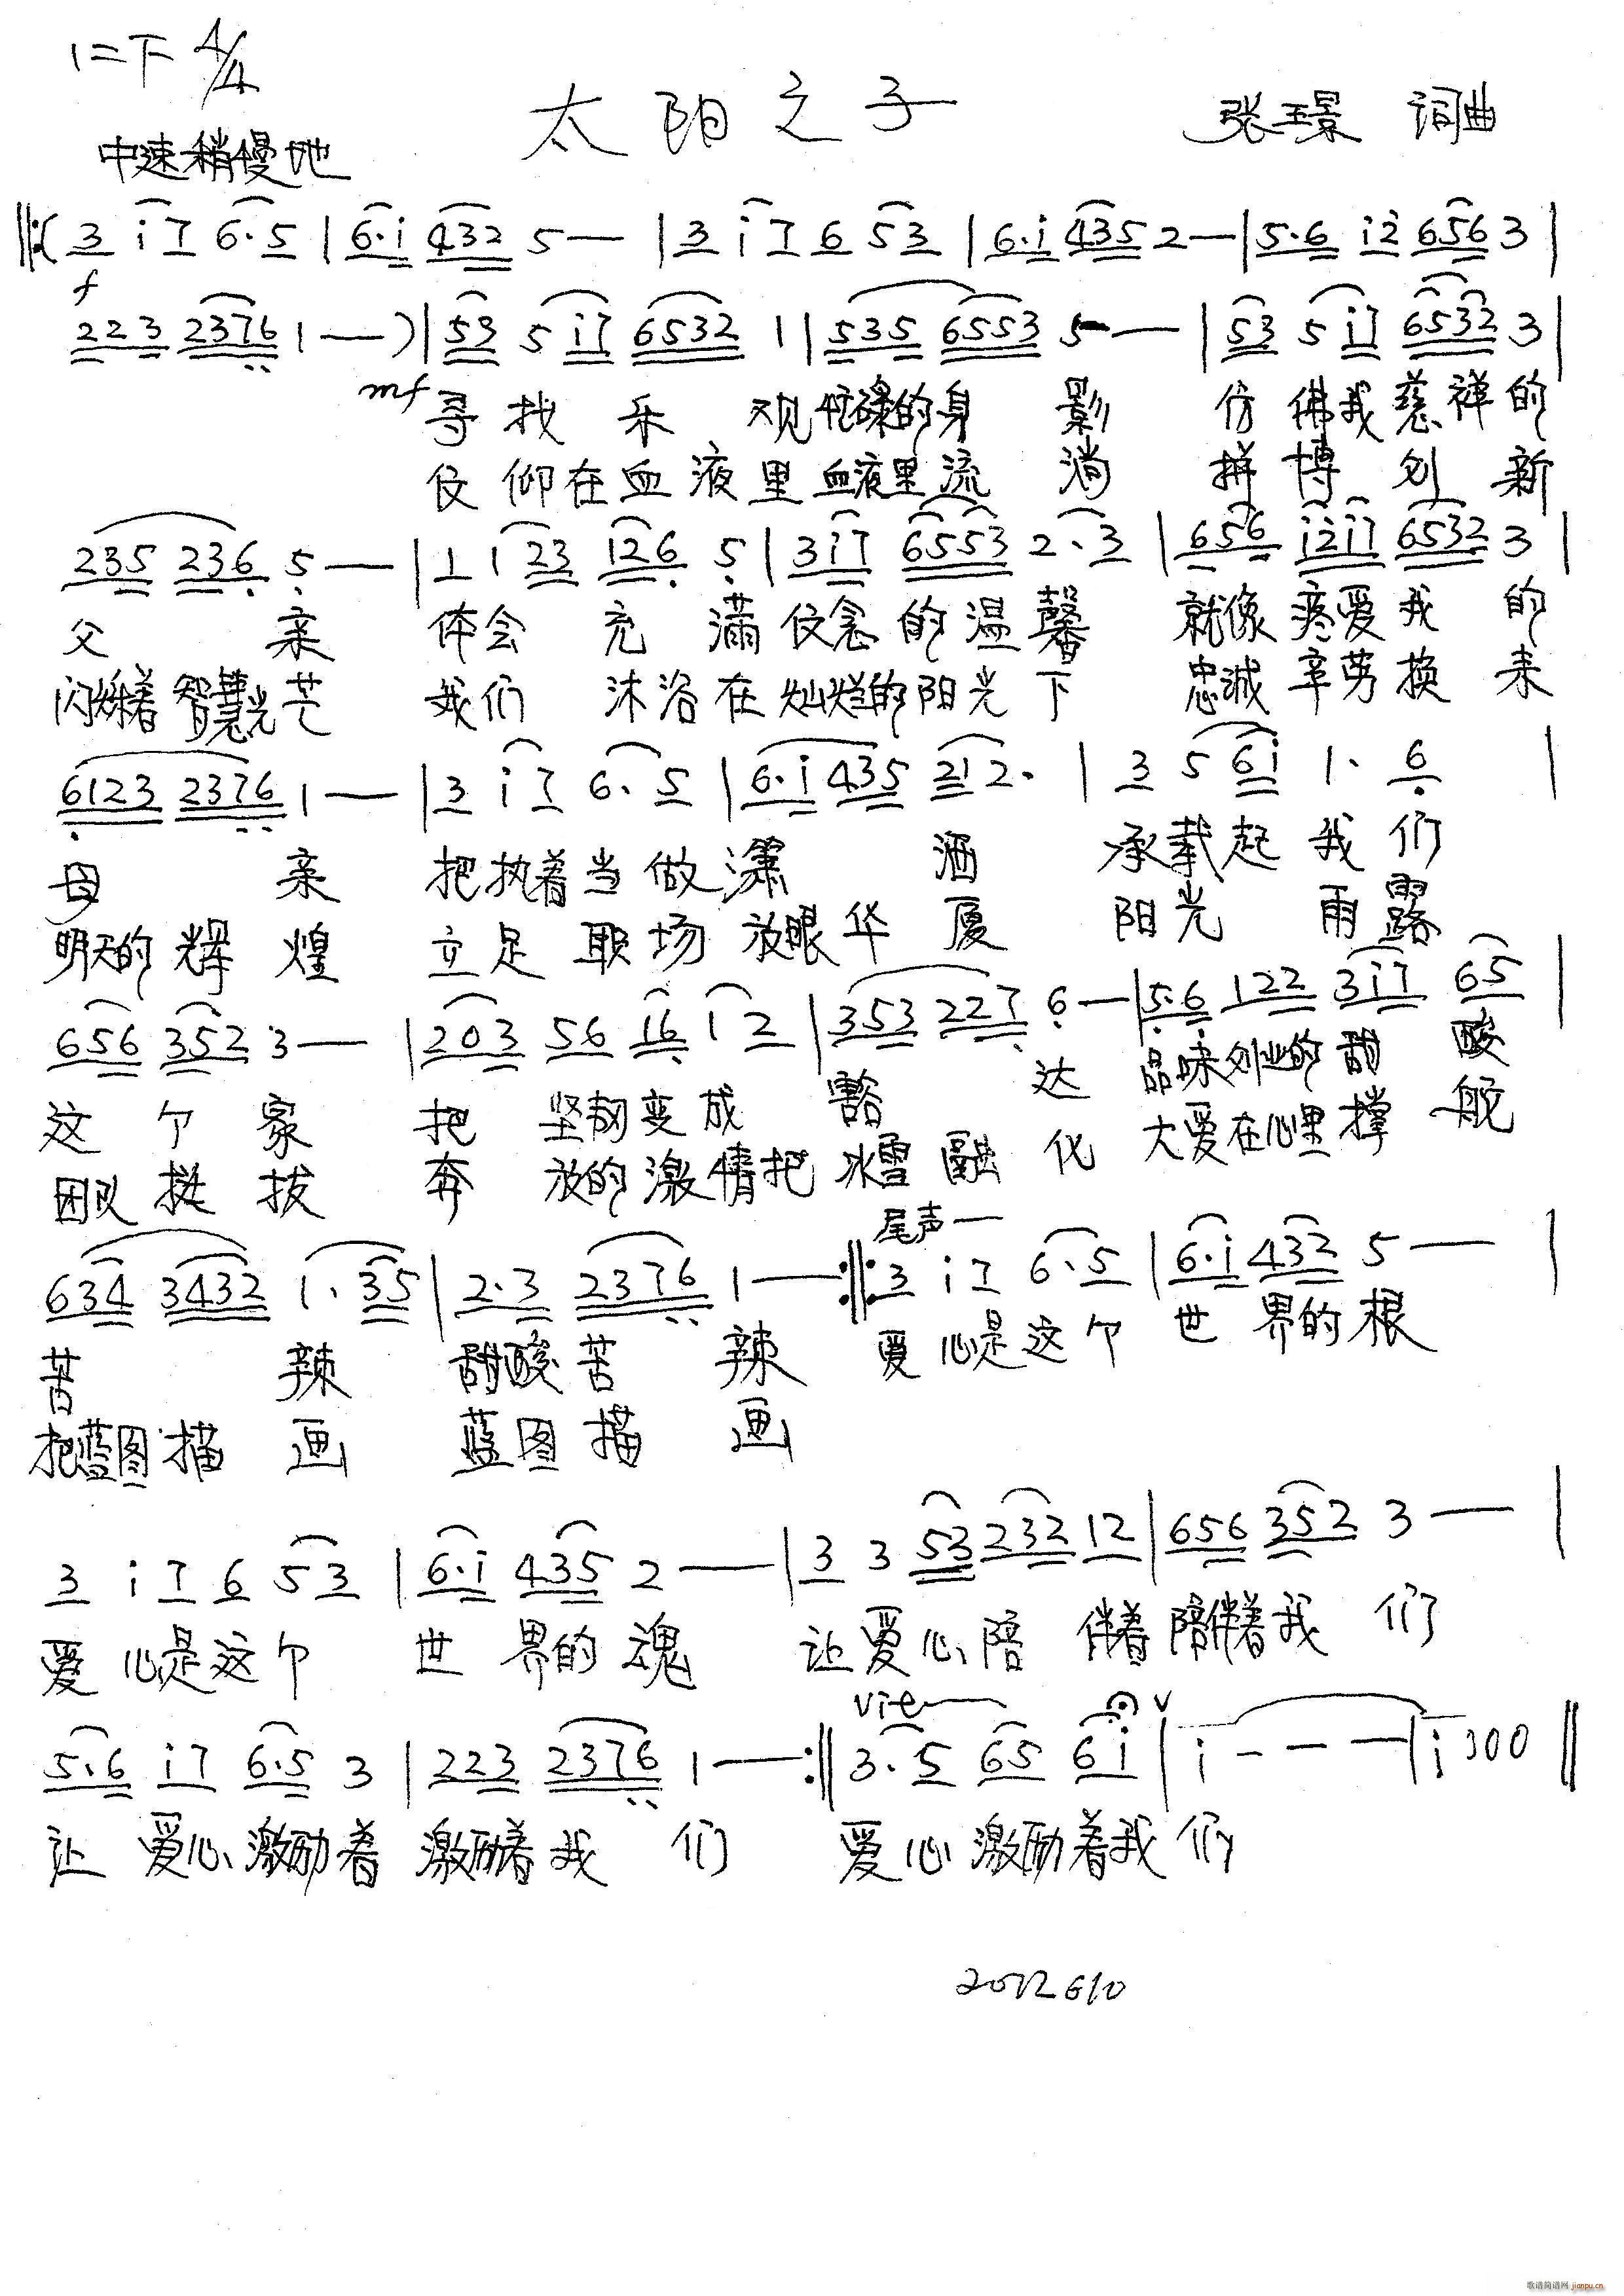 1=F 4/4
太阳之子
张玉景 词曲
中速稍慢地
‖:( 3 i 7 6·5 | 6·i 432 5— | 3 i 7 6 53 | 6·i 435 2— | 5·6 i2 656 3 |
f
223 2376 1—)| 53 5 i7 6532 1 | 535 6553 5— | 53 5 i7 6532 3 |
mf 寻找乐观忙碌的身影 仿佛我慈祥的
信仰在血液里血液里流淌 拼博创新
235 236 5— | 1 1 23 126 5 | 3i7 6553 2·3 | 656 i2i7 6532 3 |
父亲 体会充满信念的温馨 就像疼爱我的
闪烁着智慧光芒 我们沐浴在灿烂的阳光下 忠诚辛劳换来
6123 2376 1— | 3 i 7 6·5 | 6·i 435 212· | 3 5 6i 1·6 |
母亲 把执着当做潇洒 承载起我们
明天的辉煌 立足职场放眼华厦 阳光雨露
656 352 3— | 203 56 16 1 2 | 353 227 6— | 5·6 122 3i7 65 |
这个家 把坚韧变成豁达 品味创业的甜酸
团队挺拔 奔放的激情把冰雪融化 大爱在心里撑航
尾声
634 3432 1·35 | 2·3 2376 1— :‖: 3 i 7 6·5 | 6·i 432 5— |
苦辣 甜酸苦辣 爱心是这个世界的根
把蓝图描画 蓝图描画
3 i 7 6 53 | 6·i 435 2— | 3 3 53 232 12 | 656 352 3— |
爱心是这个世界的魂 让爱心陪伴着陪伴着我们
vit
V
5·6 i7 6·5 3 | 223 2376 1— :‖ 3·5 65 6i | i - - - | i 00 ‖
让爱心激励着激励着我们 爱心激励着我们
2012 6 10
歌谱简谱网 jianpu.cn